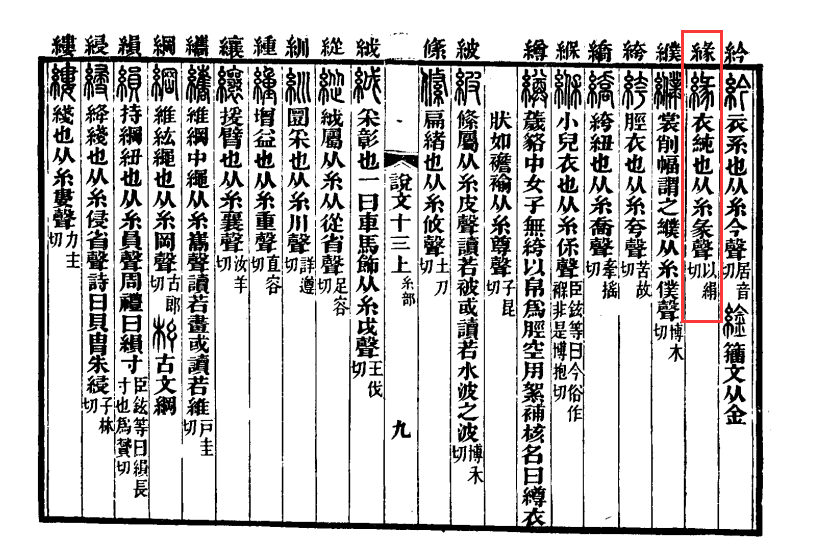 紟
紟衣系也从糸今聲居音切 䋮籒文从金
緣
緣衣純也从糸彖聲以絹切
纀
纀裳削幅謂之纀从糸僕聲博木切
絝
絝脛衣也从糸夸聲苦故切
繑
繑絝紐也从糸喬聲牽搖切
緥
緥小兒衣也从糸保聲臣鉉等曰今俗作褓非是博抱切
繜
繜薉貉中女子無絝以帛爲脛空用絮補核名曰繜衣
狀如襜褕从糸尊聲子昆切
紴
紴絛屬从糸皮聲讀若被或讀若水波之波博禾切
絛
絛扁緒也从糸攸聲土刀切
說文十三上 糸部 九
䋐
䋐采彰也一曰車馬飾从糸戉聲王伐切
緃
緃䋐屬从糸从從省聲足容切
紃
紃圜采也从糸川聲詳遵切
緟
緟增益也从糸重聲直容切
纕
纕援臂也从糸襄聲汝羊切
纗
纗維綱中繩从糸巂聲讀若畫或讀若維戶圭切
綱
綱維紘繩也从糸岡聲古郎切 古文綱
縜
縜持綱紐也从糸員聲周禮曰縜寸臣鉉等曰縜長寸也爲贇切
綅
綅絳綫也从糸侵省聲詩曰貝冑朱綅子林切
縷
縷綫也从糸婁聲力主切